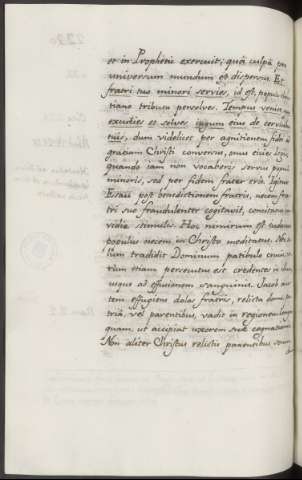 et in Prophetis exercuit; quâ culpâ per
universum mundum est dispersus. Et
fratri tuo minori servies, id est, populo Chris-
tiano tributa persolves. Tempus veniet, cum
excudies et solves iugum eius de cervicibus
tuis, dum videlicet per agnitionem fidei ad
gratiam Christi conversus, onus eius legis,
quando iam non vocaberis servus populi
minoris, sed per fidem frater eris. Igitur
Esau post benedictionem fratris, necem fra-
tri suo fraudulenter cogitavit, concitatus in-
vidiæ stimulis. Hoc nimirum est Iudaeus
populus necem in Christo meditatus. Non so-
lum tradidit Dominum patibulo crucis, ve-
rum etiam persecutus est credentes in illum
usque ad effusionem sanguinis. Jacob au-
tem effugiens dolos fratris, relicta domo, pa-
triâ, vel parentibus, vadit in regionem longin-
quam, ut accipiat uxorem suæ cognationis.
Non aliter Christus relictis parentibus secun-